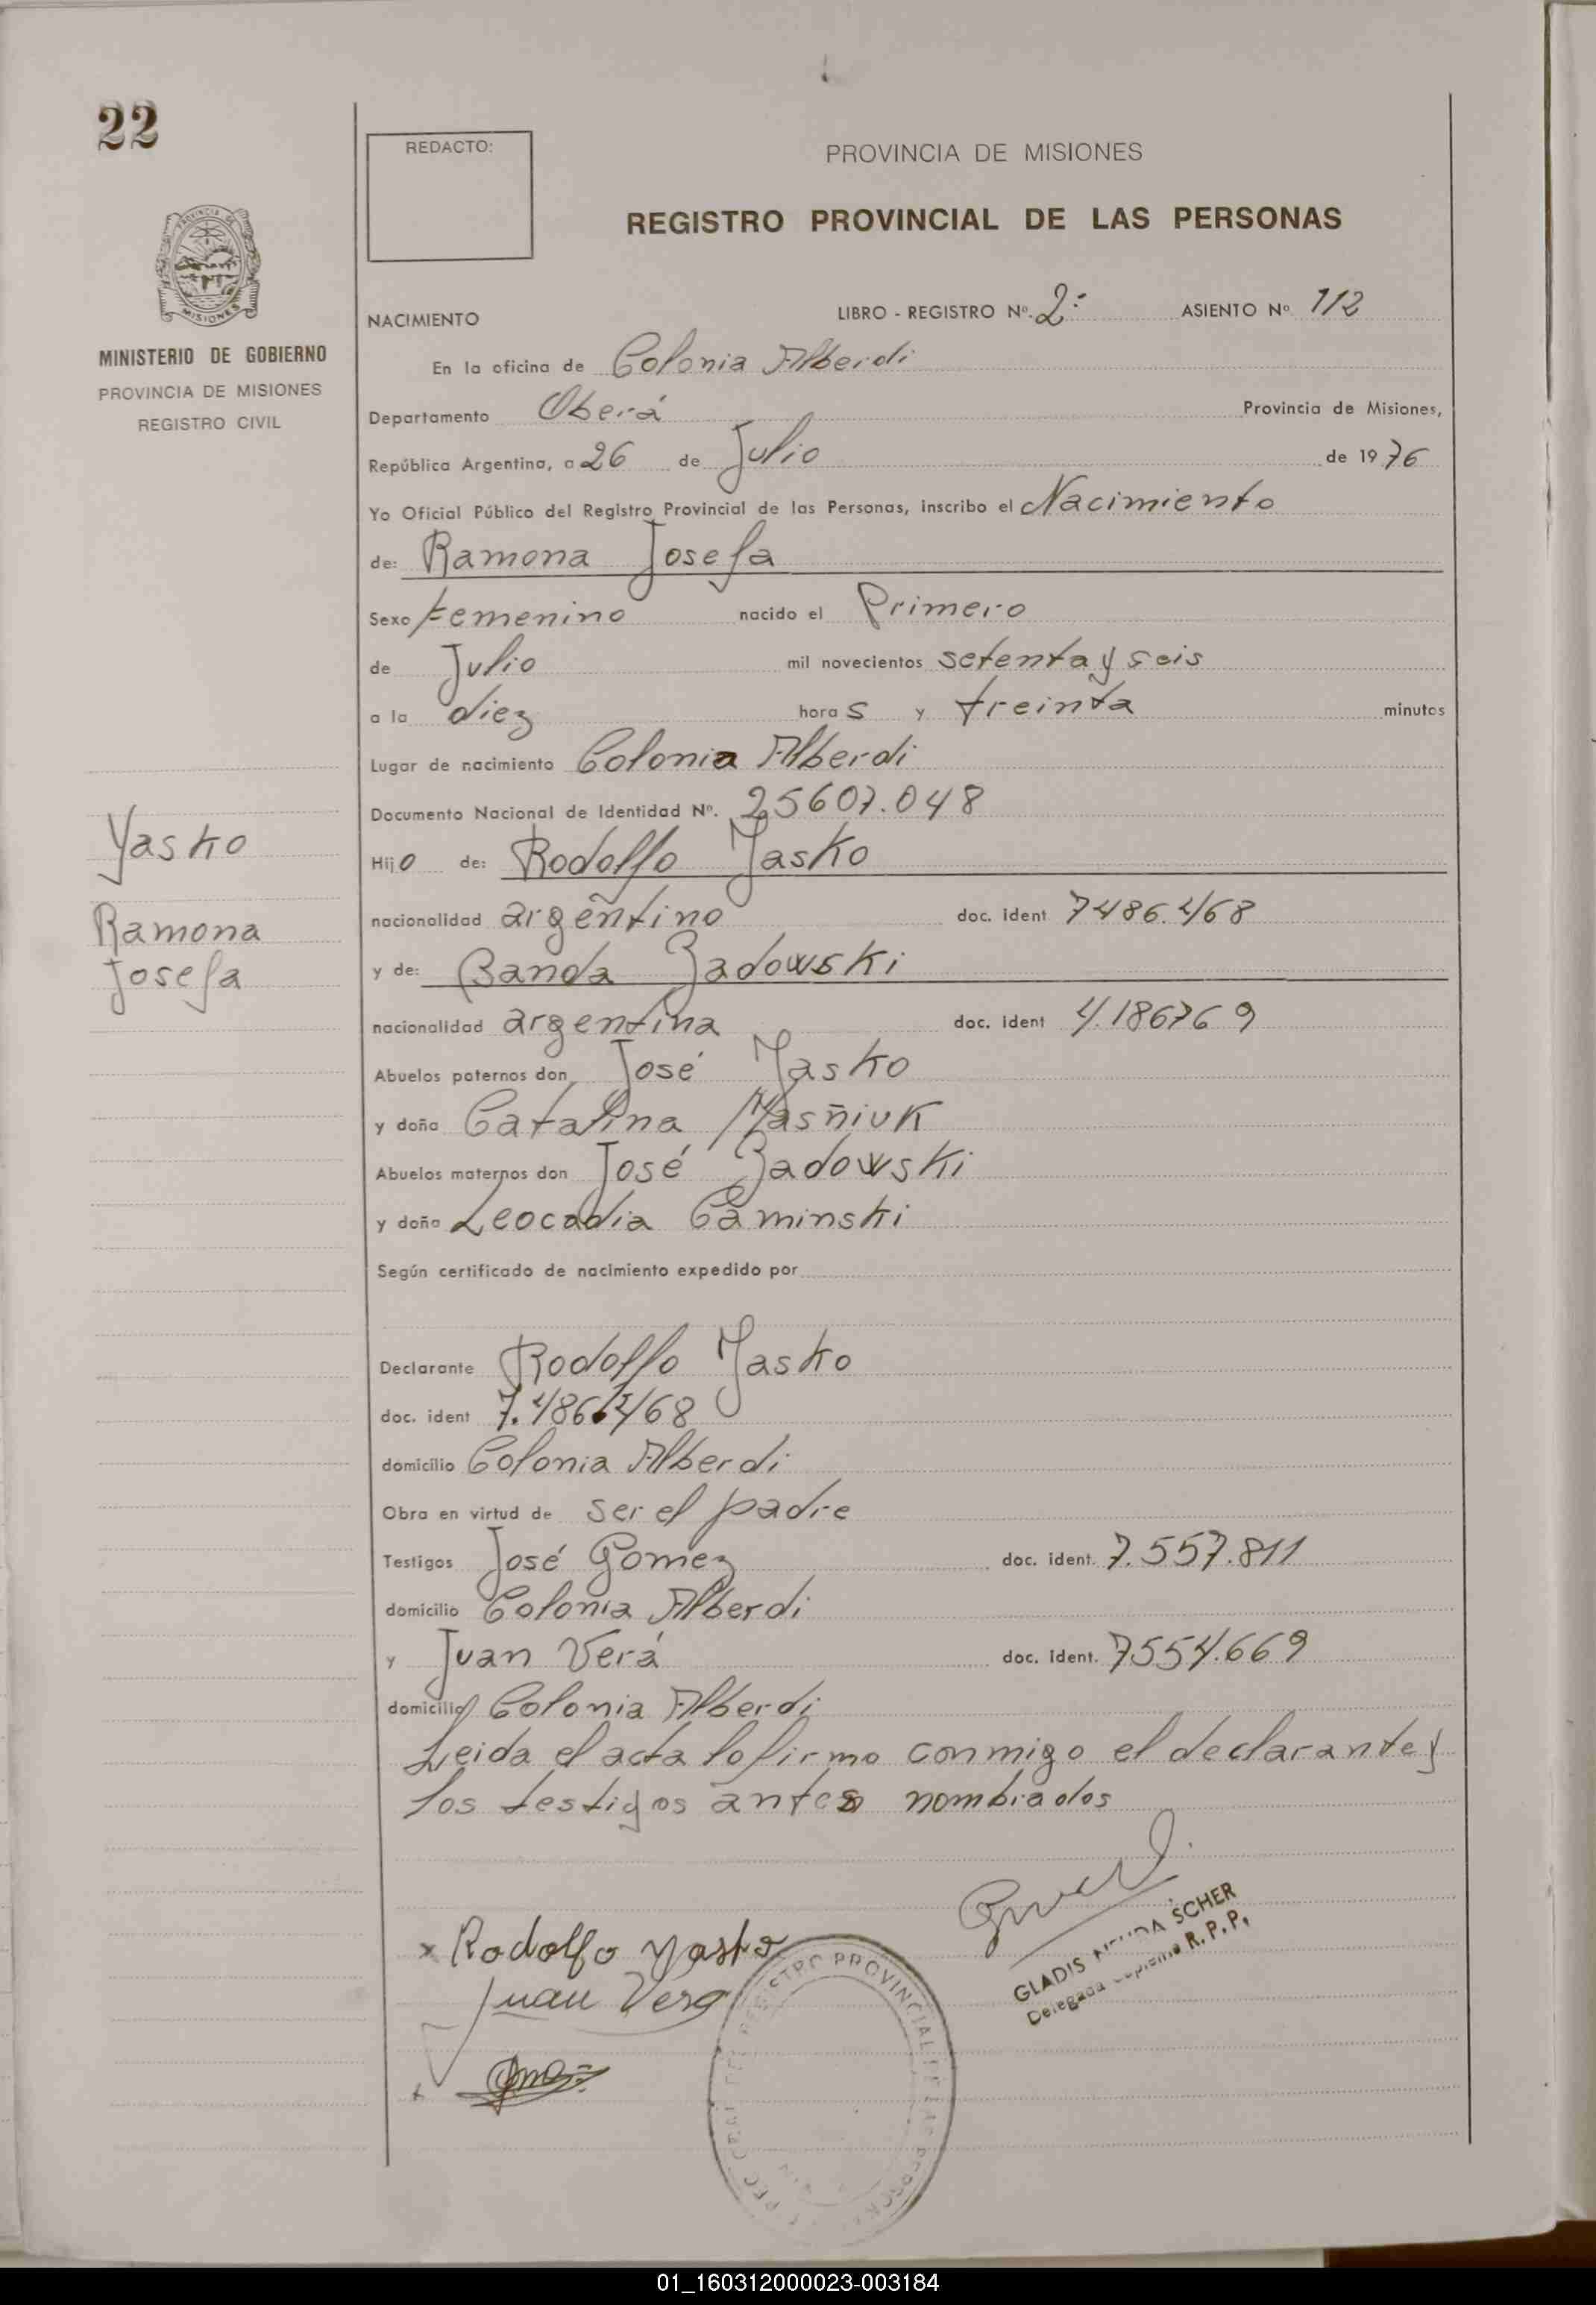 22
REDACTO:
PROVINCIA DE MISIONES
REGISTRO PROVINCIAL DE LAS PERSONAS
MISIONES
MINISTERIO DE GOBIERNO
PROVINCIA DE MISIONES
REGISTRO CIVIL
NACIMIENTO LIBRO - REGISTRO Nº. 2º ASIENTO Nº 112
En la oficina de Colonia Alberdi
Departamento Oberá Provincia de Misiones,
República Argentina, a 26 de Julio de 1976
Yo Oficial Público del Registro Provincial de las Personas, inscribo el Nacimiento
de: Ramona Josefa
Sexo Femenino nacido el Primero
de Julio mil novecientos setenta y seis
a la diez horas y treinta minutos
Lugar de nacimiento Colonia Alberdi
Documento Nacional de Identidad Nº. 25607.048
Yasko
Hijo de: Rodolfo Yasko
Ramona
Josefa
nacionalidad argentino doc. ident 7486.468
y de: Banda Zadowski
nacionalidad argentina doc. ident 4.186769
Abuelos paternos don José Yasko
y doña Catalina
Abuelos maternos don José Zadowski
y doña Leocadia Caminski
Según certificado de nacimiento expedido por
Declarante Rodolfo Yasko
doc. ident 7.486.468
domicilio Colonia Alberdi
Obra en virtud de ser el padre
Testigos José Gomez doc. ident. 7.557.811
domicilio Colonia Alberdi
y Juan Verá doc. ident. 7554.669
domicilio Colonia Alberdi
Leida el acta lo firmo conmigo el declarante y
los testigos antes nombrados
x Rodolfo Yasko
Juan Vera
GLADIS SCHER
Delegada R.P.P.
REGISTRO PROVINCIAL DE LAS PERSONAS
01_160312000023-003184